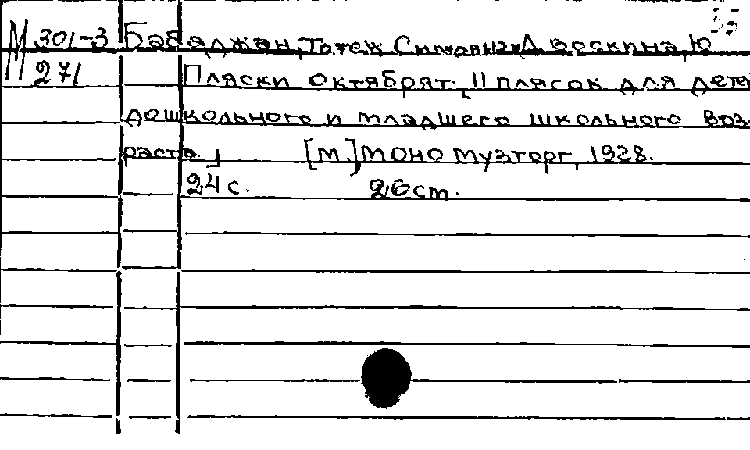 35
М 301-3 Бабаджан, Тотеш Симовна и Даоскина, Ю
271 Пляски октябрят. [11 плясок для дете
дошкольного и младшего школьного воз-
раста.] [М.] Моно музторг, 1928.
24 с. 26 ст.